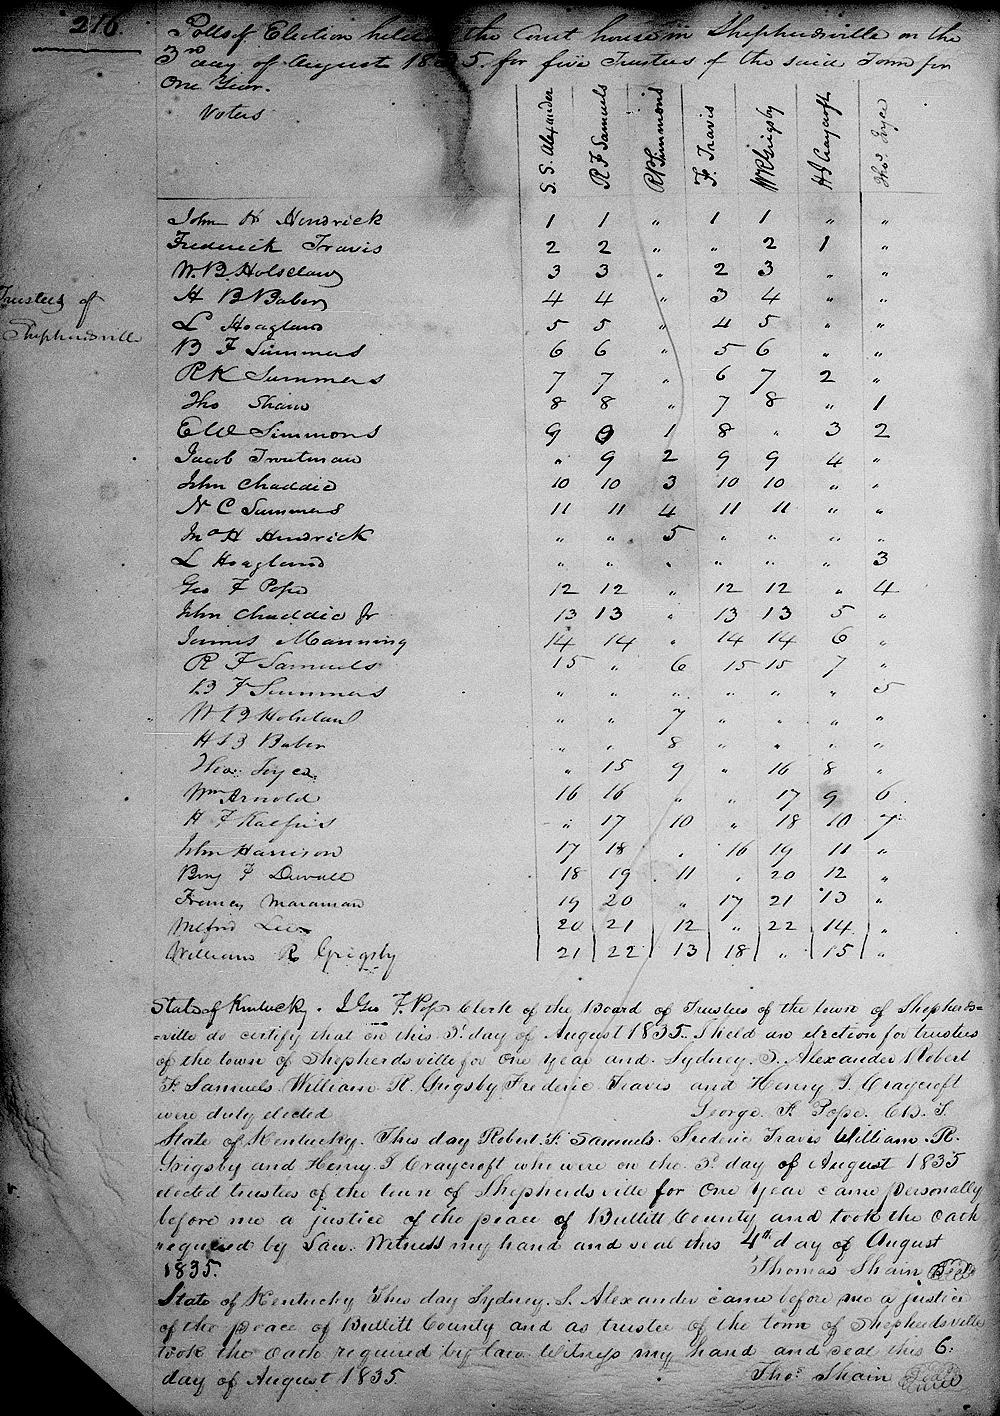 216.
Polls of Election held the Court house in Shepherdsville on the
3rd day of August 1835. for five Trustees of the said Town for
One Year.
Voters
S. S. Alexander
R F Samuels
R P Simmons
F. Travis
W R Grigsby
H I Craycroft
Thos Joyce
Trustees of
Shepherdsville
John H Hendrick 1 1 " 1 1 " "
Frederick Travis 2 2 " " 2 1 "
W. B. Holsclaw 3 3 " 2 3 " "
H B Baber 4 4 " 3 4 " "
L Hoagland 5 5 " 4 5 " "
B F Summers 6 6 " 5 6 " "
R K Summers 7 7 " 6 7 2 "
Tho Shain 8 8 " 7 8 " 1
E W Simmons 9 9 1 8 " 3 2
Jacob Troutman " 9 2 9 9 4 "
John Chaddic 10 10 3 10 10 " "
N C Summers 11 11 4 11 11 " "
Jno H Hendrick " " 5 " " " "
L Hoagland " " " " " " 3
Geo F Pope 12 12 " 12 12 " 4
John Chaddic Jr 13 13 " 13 13 5 "
James Manning 14 14 " 14 14 6 "
R F Samuels 15 " 6 15 15 7 "
B F Summers " " " " " " 5
W B Holsclaw " " 7 " " " "
H B Baber " " 8 " " " "
Thos. Joyce. " 15 9 " 16 8 "
Wm Arnold 16 16 " " 17 9 6
H F Kalfus " 17 10 " 18 10 7
John Harrison 17 18 " 16 19 11 "
Benj F Duvall 18 19 11 " 20 12 "
Francis Maraman 19 20 " 17 21 13 "
Wilford Lee 20 21 12 " 22 14 "
William R Grigsby 21 22 13 18 " 15 "
State of Kentucky. I Geo F. Pope Clerk of the Board of Trustees of the town of Shepherds=
=ville do certify that on this 3d day of August 1835. I held an election for trustees
of the town of Shepherdsville for One year and Sydney. S. Alexander Robert
F. Samuels William R. Grigsby Frederic Travis and Henry I. Craycroft
were duly elected George. F. Pope. C.B.T.
State of Kentucky. This day Robert. F. Samuels. Frederic Travis William. R.
Grigsby and Henry. I Craycroft who were on the 3d day of August 1835
elected trustees of the town of Shepherdsville for One year came personally
before me a justice of the peace of Bullitt County and took the Oath
required by Law. Witness my hand and seal this 4th day of August
1835. Thomas Shain Seal
State of Kentucky This day Sydney. S. Alexander came before me a justice
of the peace of Bullitt County and as trustee of the town of Shepherdsville
took the Oath required by law. Witness my hand and seal this 6.
day of August 1835. Thos Shain Seal